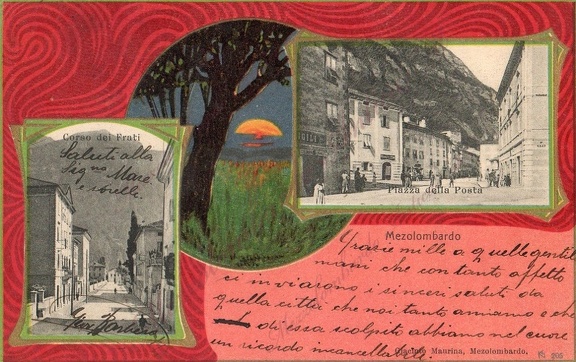 Corso dei Frati
Saluti alla
Sig.na Mare
e sorelle
Piazza della Posta
Mezolombardo
Grazie mille a quelle gentil
mani che con tanto affetto
ci inviarono i sinceri saluti da
quella città che noi tanto amiamo e che
di essa scolpito abbiamo nel cuore
un ricordo incancellabile.
Giacinto Maurina, Mezolombardo.